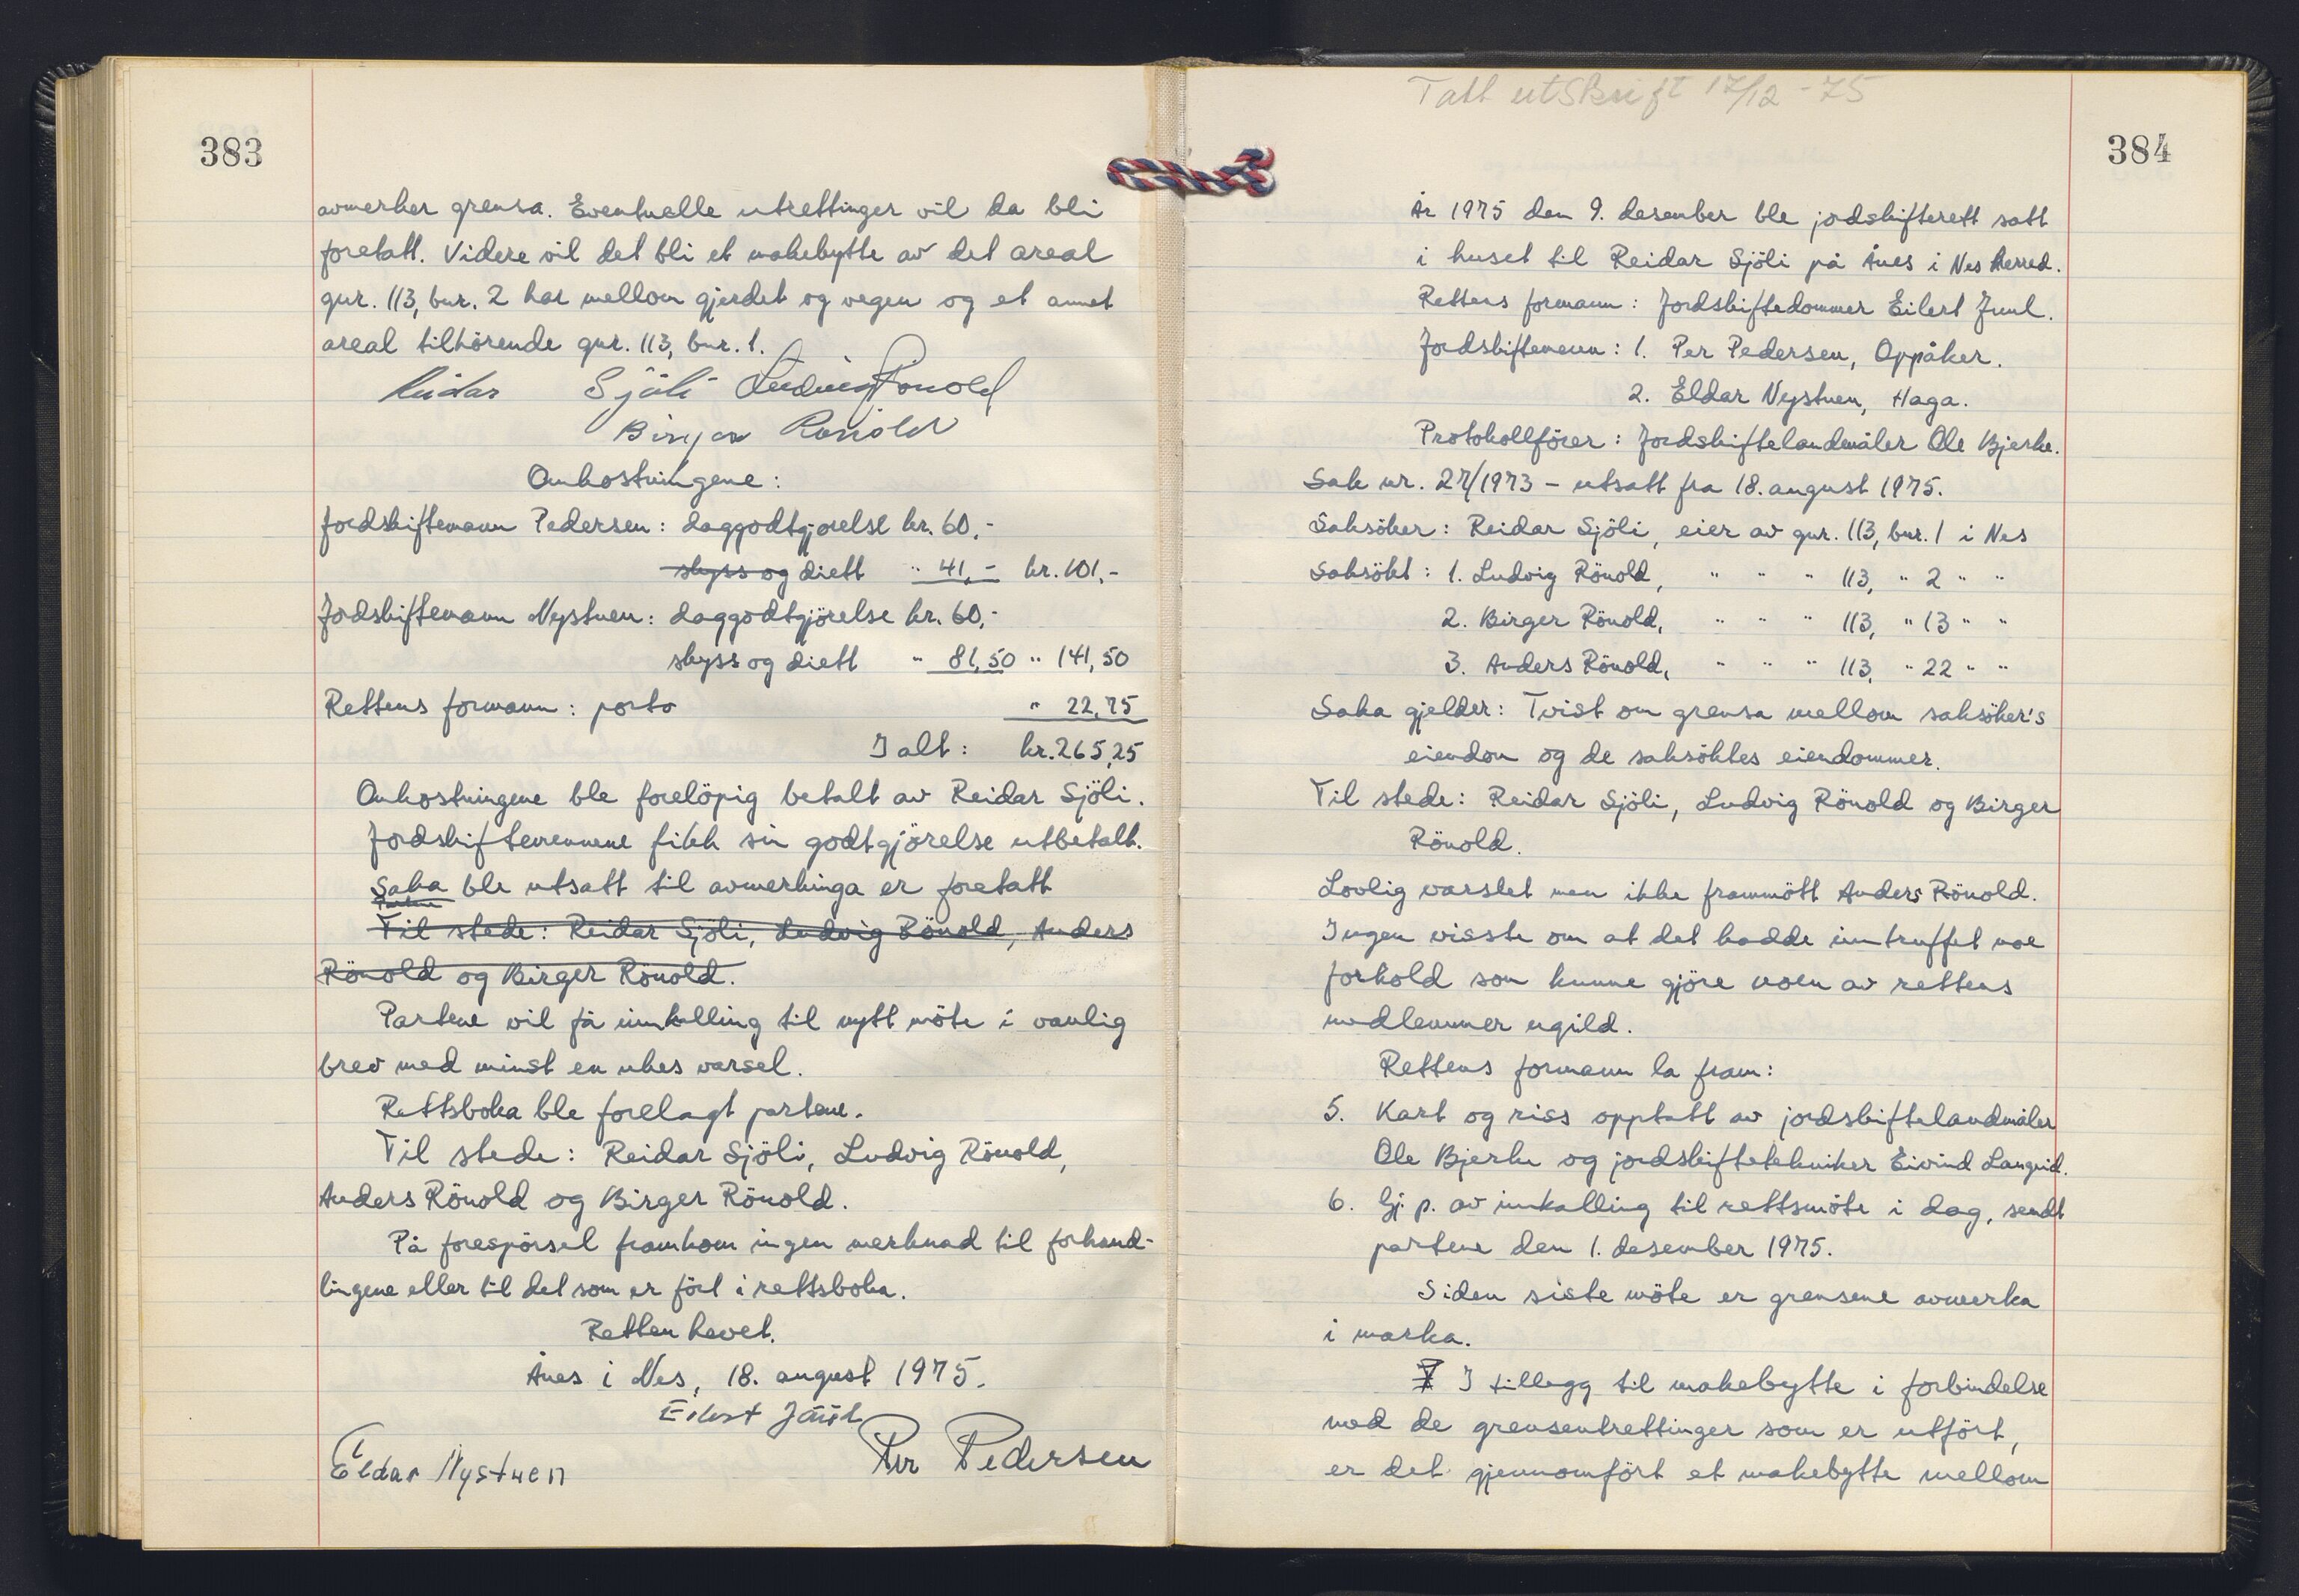 383
avmerker grensa. Eventuelle utrettinger vil da bli
foretatt. Videre vil det bli et makebytte av det areal
gnr. 113, bnr. 2 har mellom gjerdet og vegen og et annet
areal tilhörende gnr. 113, bnr. 1.
Reidar Sjöli Ludvig Rönold
Birger Rönold
Omkostningene:
Jordskiftemann Pedersen: daggodtgjørelse kr. 60,-
skyss og diett " 41,- kr. 101,-
Jordskiftemann Nystuen: daggodtgjörelse kr. 60,-
skyss og diett " 81,50 " 141,50
Rettens formann: porto " 22,75
I alt: kr. 265,25
Omkostningene ble forelöpig betalt av Reidar Sjöli.
Jordskiftemennene fikk sin godtgjörelse utbetalt.
Saka ble utsatt til avmerkinga er foretatt
Til stede: Reidar Sjöli, Ludvig Rönold, Anders
Rönold og Birger Rönold.
Partene vil få innkalling til nytt möte i vanlig
brev med minst en ukes varsel.
Rettsboka ble forelagt partene.
Til stede: Reidar Sjöli, Ludvig Rönold,
Anders Rönold og Birger Rönold.
På forespörsel framkom ingen merknad til forhand-
lingene eller til det som er fört i rettsboka.
Retten hevet.
Ånes i Nes, 18. august 1975.
Eilert Juul
Eldar Nystuen Per Pedersen
Tatt utskrift 17/12-75
384
År 1975 den 9. desember ble jordskifterett satt
i huset til Reidar Sjöli på Ånes i Nes herred.
Rettens formann: Jordskiftedommer Eilert Juul.
Jordskiftemenn: 1. Per Pedersen, Oppåker.
2. Eldar Nystuen, Haga.
Protokollförer: Jordskiftelandmåler Ole Bjerke.
Sak nr. 27/1973 - utsatt fra 18. august 1975.
Saksöker: Reidar Sjöli, eier av gnr. 113, bnr. 1 i Nes
Saksökt: 1. Ludvig Rönold, " " " 113, " 2 " "
2. Birger Rönold, " " " 113, " 13 " "
3. Anders Rönold, " " " 113, " 22 " "
Saka gjelder: Tvist om grensa mellom saksöker's
eiendom og de saksöktes eiendommer.
Til stede: Reidar Sjöli, Ludvig Rönold og Birger
Rönold.
Lovlig varslet men ikke frammött Anders Rönold.
Ingen visste om at det hadde inntruffet noe
forhold som kunne gjöre noen av rettens
medlemmer ugild.
Rettens formann la fram:
5. Kart og riss opptatt av jordskiftelandmåler
Ole Bjerke og jordskiftetekniker Eivind Langrid.
6. Gj. p. av innkalling til rettsmöte i dag, sendt
partene den 1. desember 1975.
Siden siste möte er grensene avmerka
i marka.
I tillegg til makebytte i forbindelse
med de grenseutrettinger som er utfört,
er det gjennomfört et makebytte mellom